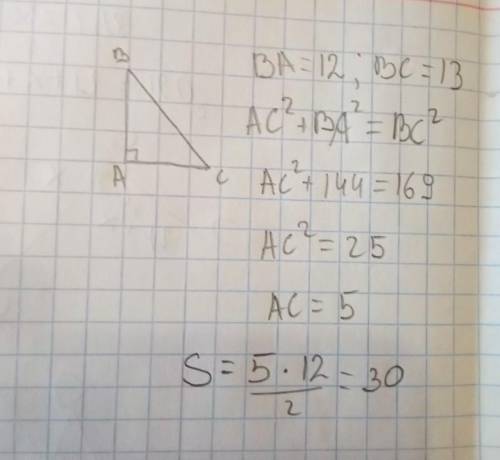 B
A
C
BA=12; BC=13
AC²+BA²=BC²
AC²+144=169
AC²=25
AC=5
S=5·12/2=30